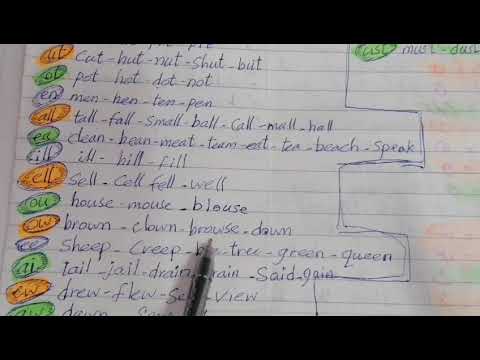 ut cut - hut - nut - shut - but
ust must - dust
ot pot hot - dot - not
en men - hen - ten - pen
all tall - fall - small - ball - call - mall - hall
ea clean - bean - meat - team - eat - tea - beach - speak
ill ill - hill - fill
ell Sell - Cell fell - well
ou house - mouse - blouse
ow brown - clown - browse - down
ee Sheep - Creep - tree - green - queen
ai tail - jail - drain - Said - gain
ew drew - flew - view
aw